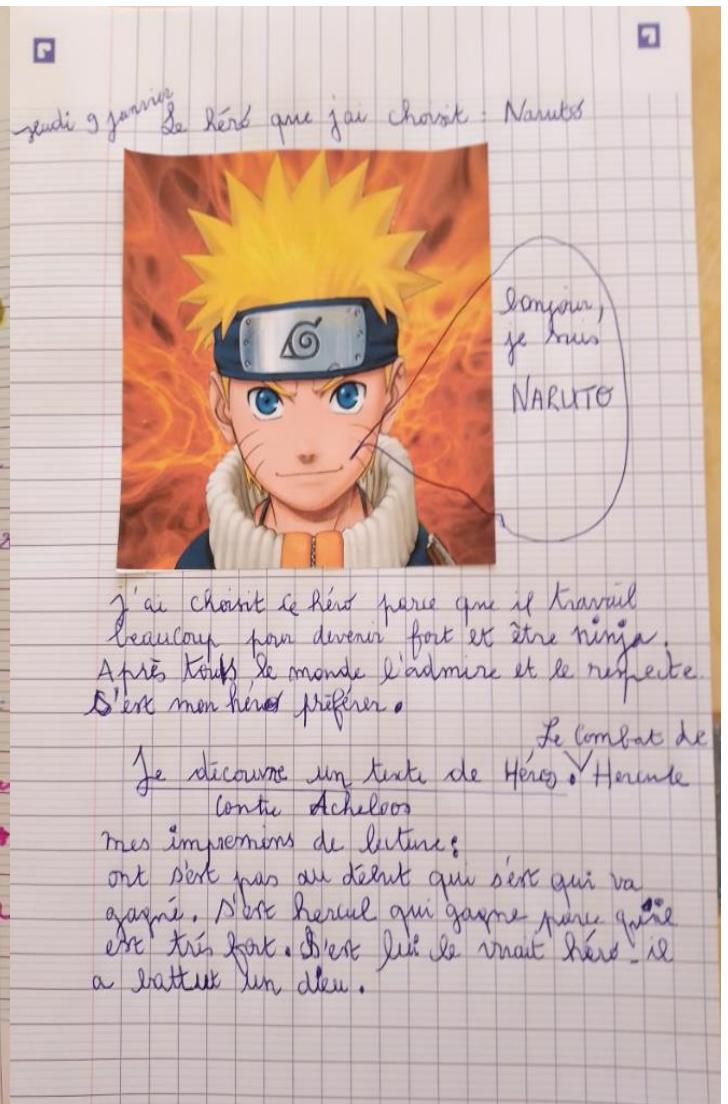 jeudi 9 janvier
Le héro que j'ai choisit : Naruto
bonjour,
je suis
NARUTO
J'ai choisit ce héro parce que il travail
beaucoup pour devenir fort et être ninja.
Après tout le monde l'admire et le respecte.
S'est mon héro préférer.
Le Combat de
Je découvre un texte de Héros. Hercule
contre Acheloos
mes impressions de lecture :
ont s'est pas au début qui s'est qui va
gagné. S'est hercul qui gagne parce qu'il
est trés fort. S'est lui le vrait héro. il
a battut un dieu.